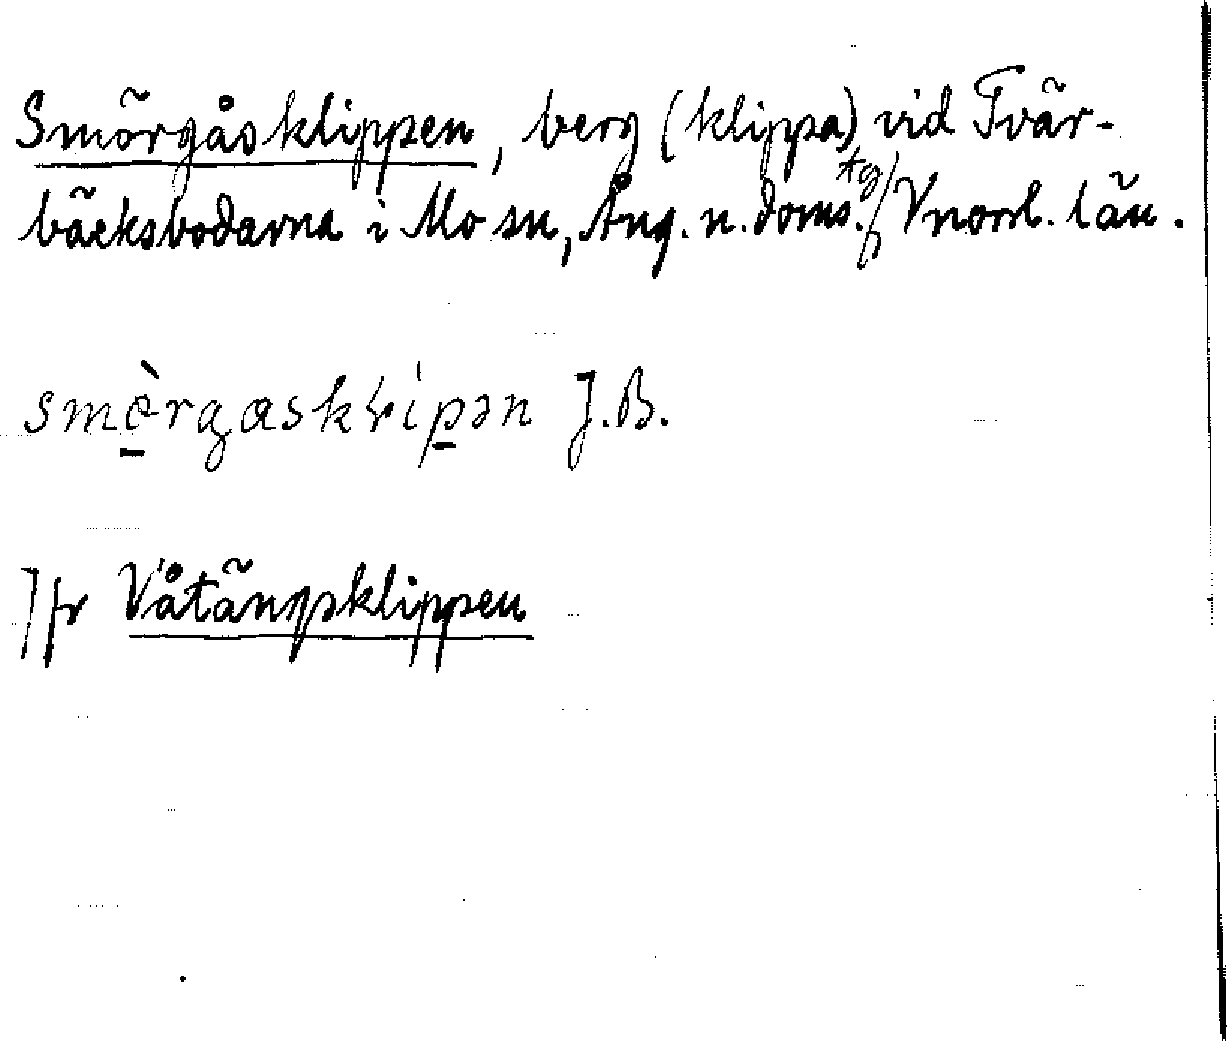 Smörgåsklippen, berg (klippa) vid Tvär-
bäcksbodarna i Mo sn, Ång. n. doms.tg/ Vnorrl. län.
J.B.
Jfr Våtängsklippen